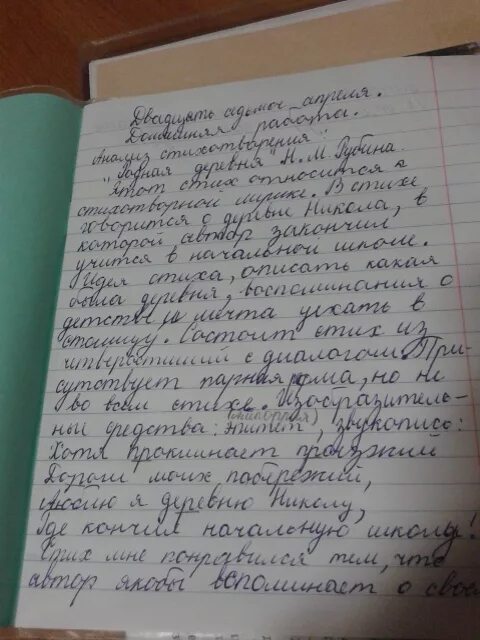 Двадцать седьмое апреля.
Домашняя работа.
Анализ стихотворения
"Родная деревня" Н. М. Рубцова
Этот стих относится к
стихотворной лирике. В стихе
говорится о деревне Никола, в
которой автор закончил
учится в начальной школе.
Идея стиха, описать какая
была деревня, воспоминания о
детстве и мечта уехать в
столицу. Состоит стих из
четверостиший с диалогом. При-
сутствует парная рифма, но не
во всем стихе. Изобразитель-
(аллегория)
ные средства: эпитет, звукопись:
Хотя проклинает проезжий
Дороги моих побережий,
Люблю я деревню Николу,
Где кончил начальную школу!
Стих мне понравился тем, что
автор якобы вспоминает о свое